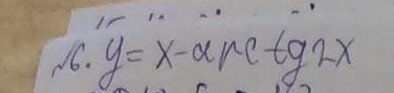 №6. y = x - arctg2x